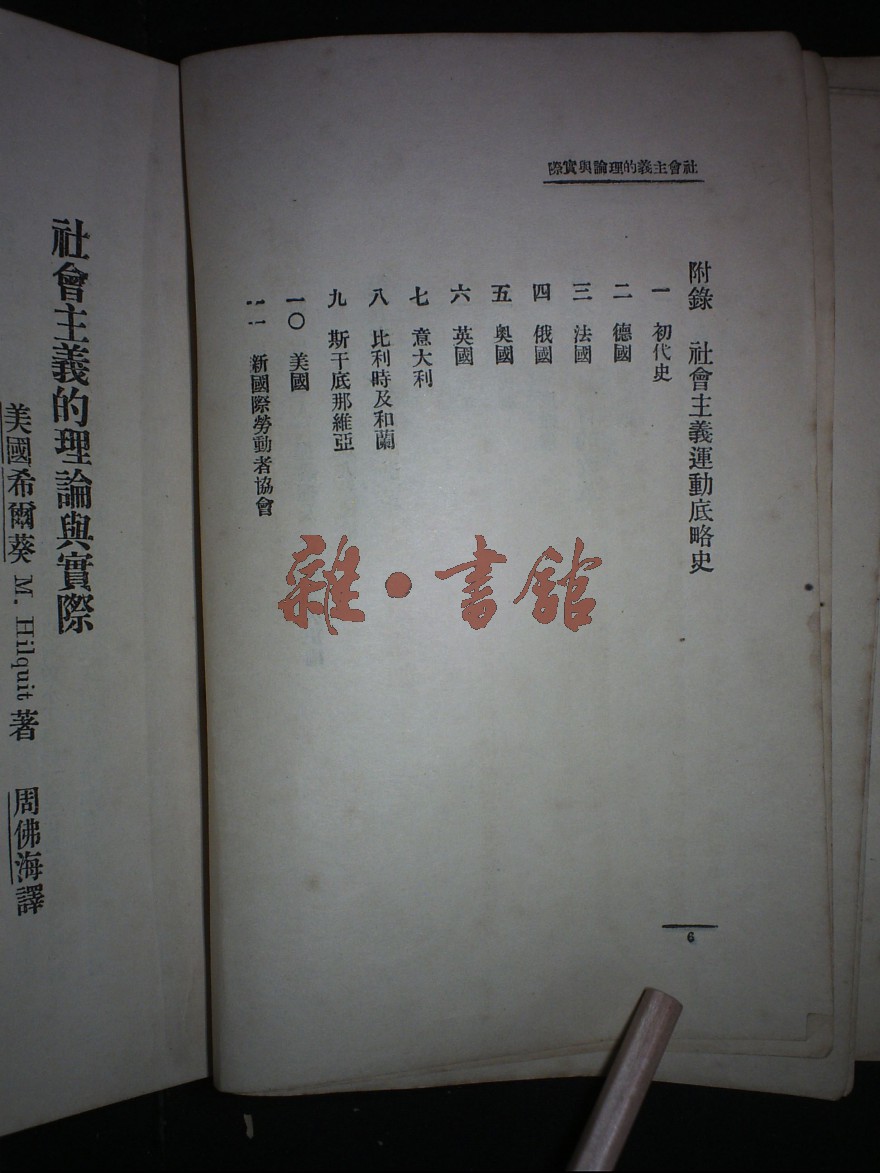 社會主義的理論與實際
附錄 社會主義運動底略史
一 初代史
二 德國
三 法國
四 俄國
五 奧國
六 英國
七 意大利
八 比利時及和蘭
九 斯干底那維亞
一〇 美國
一一 新國際勞動者協會
6
雜·書館
社會主義的理論與實際
美國希爾葵 M. Hilquit 著 周佛海譯